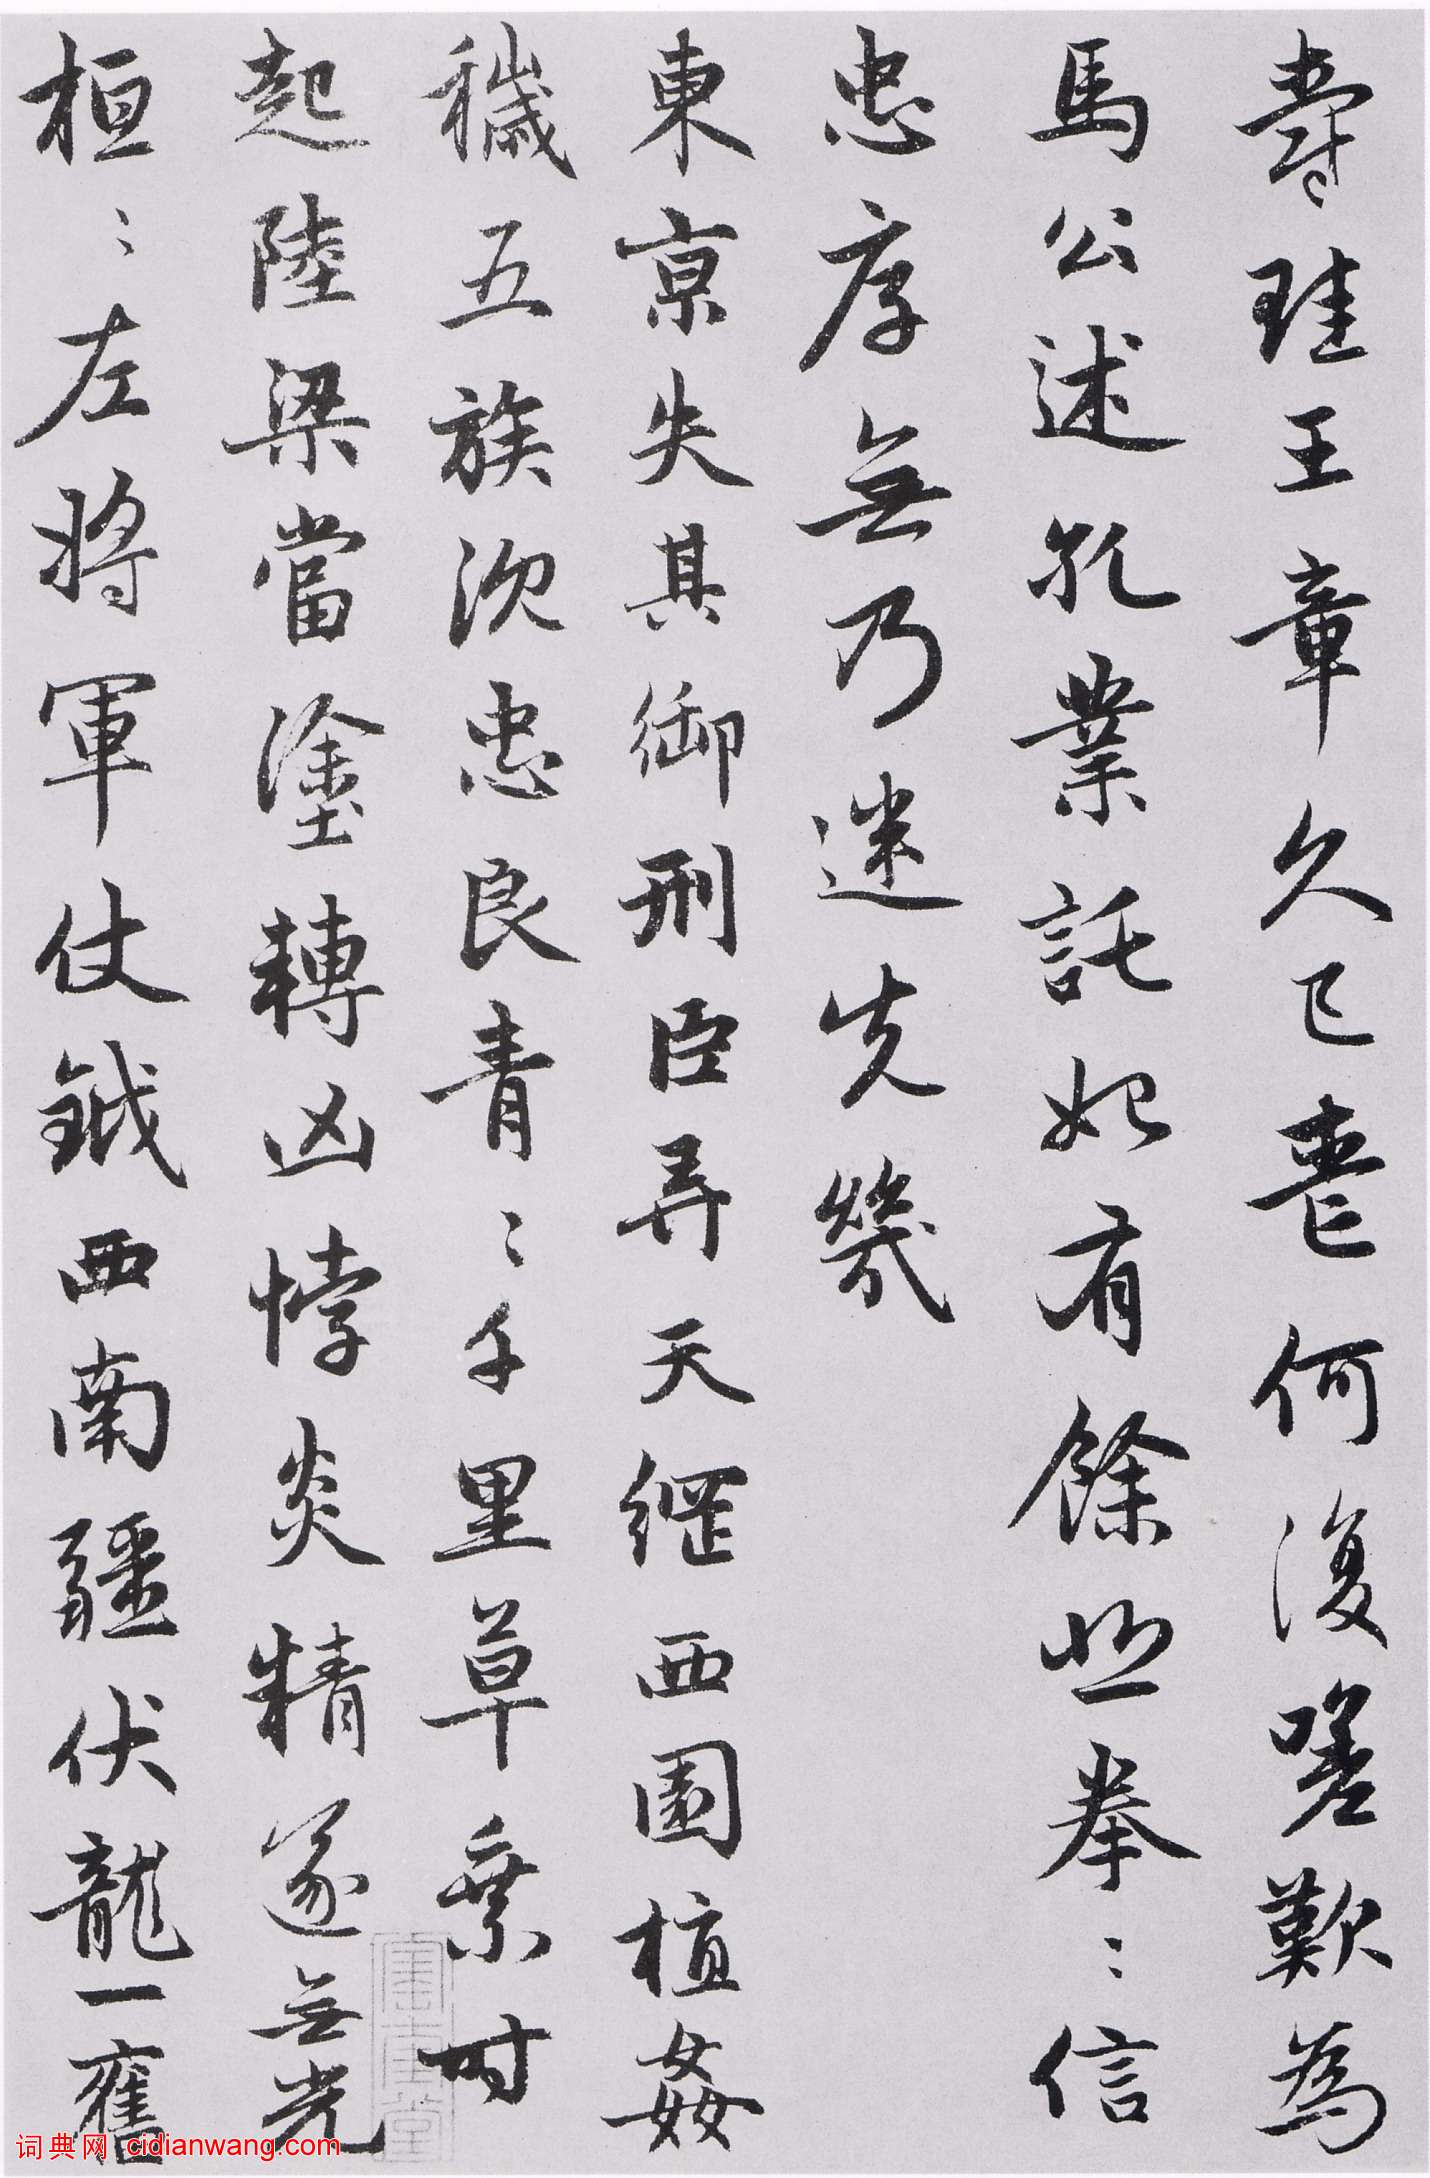 爵珪王章久已喪何復嗟歎為
馬公述孔業託始有餘悲拳〻信
忠厚無乃迷先幾
東京失其御刑臣弄天綱西園植姦
穢五族沉忠良青〻千里草乘時
起陸梁當塗轉凶悖炎精遂無光
桓〻左將軍仗鉞西南疆伏龍一奮
词典网 cidianwang.com